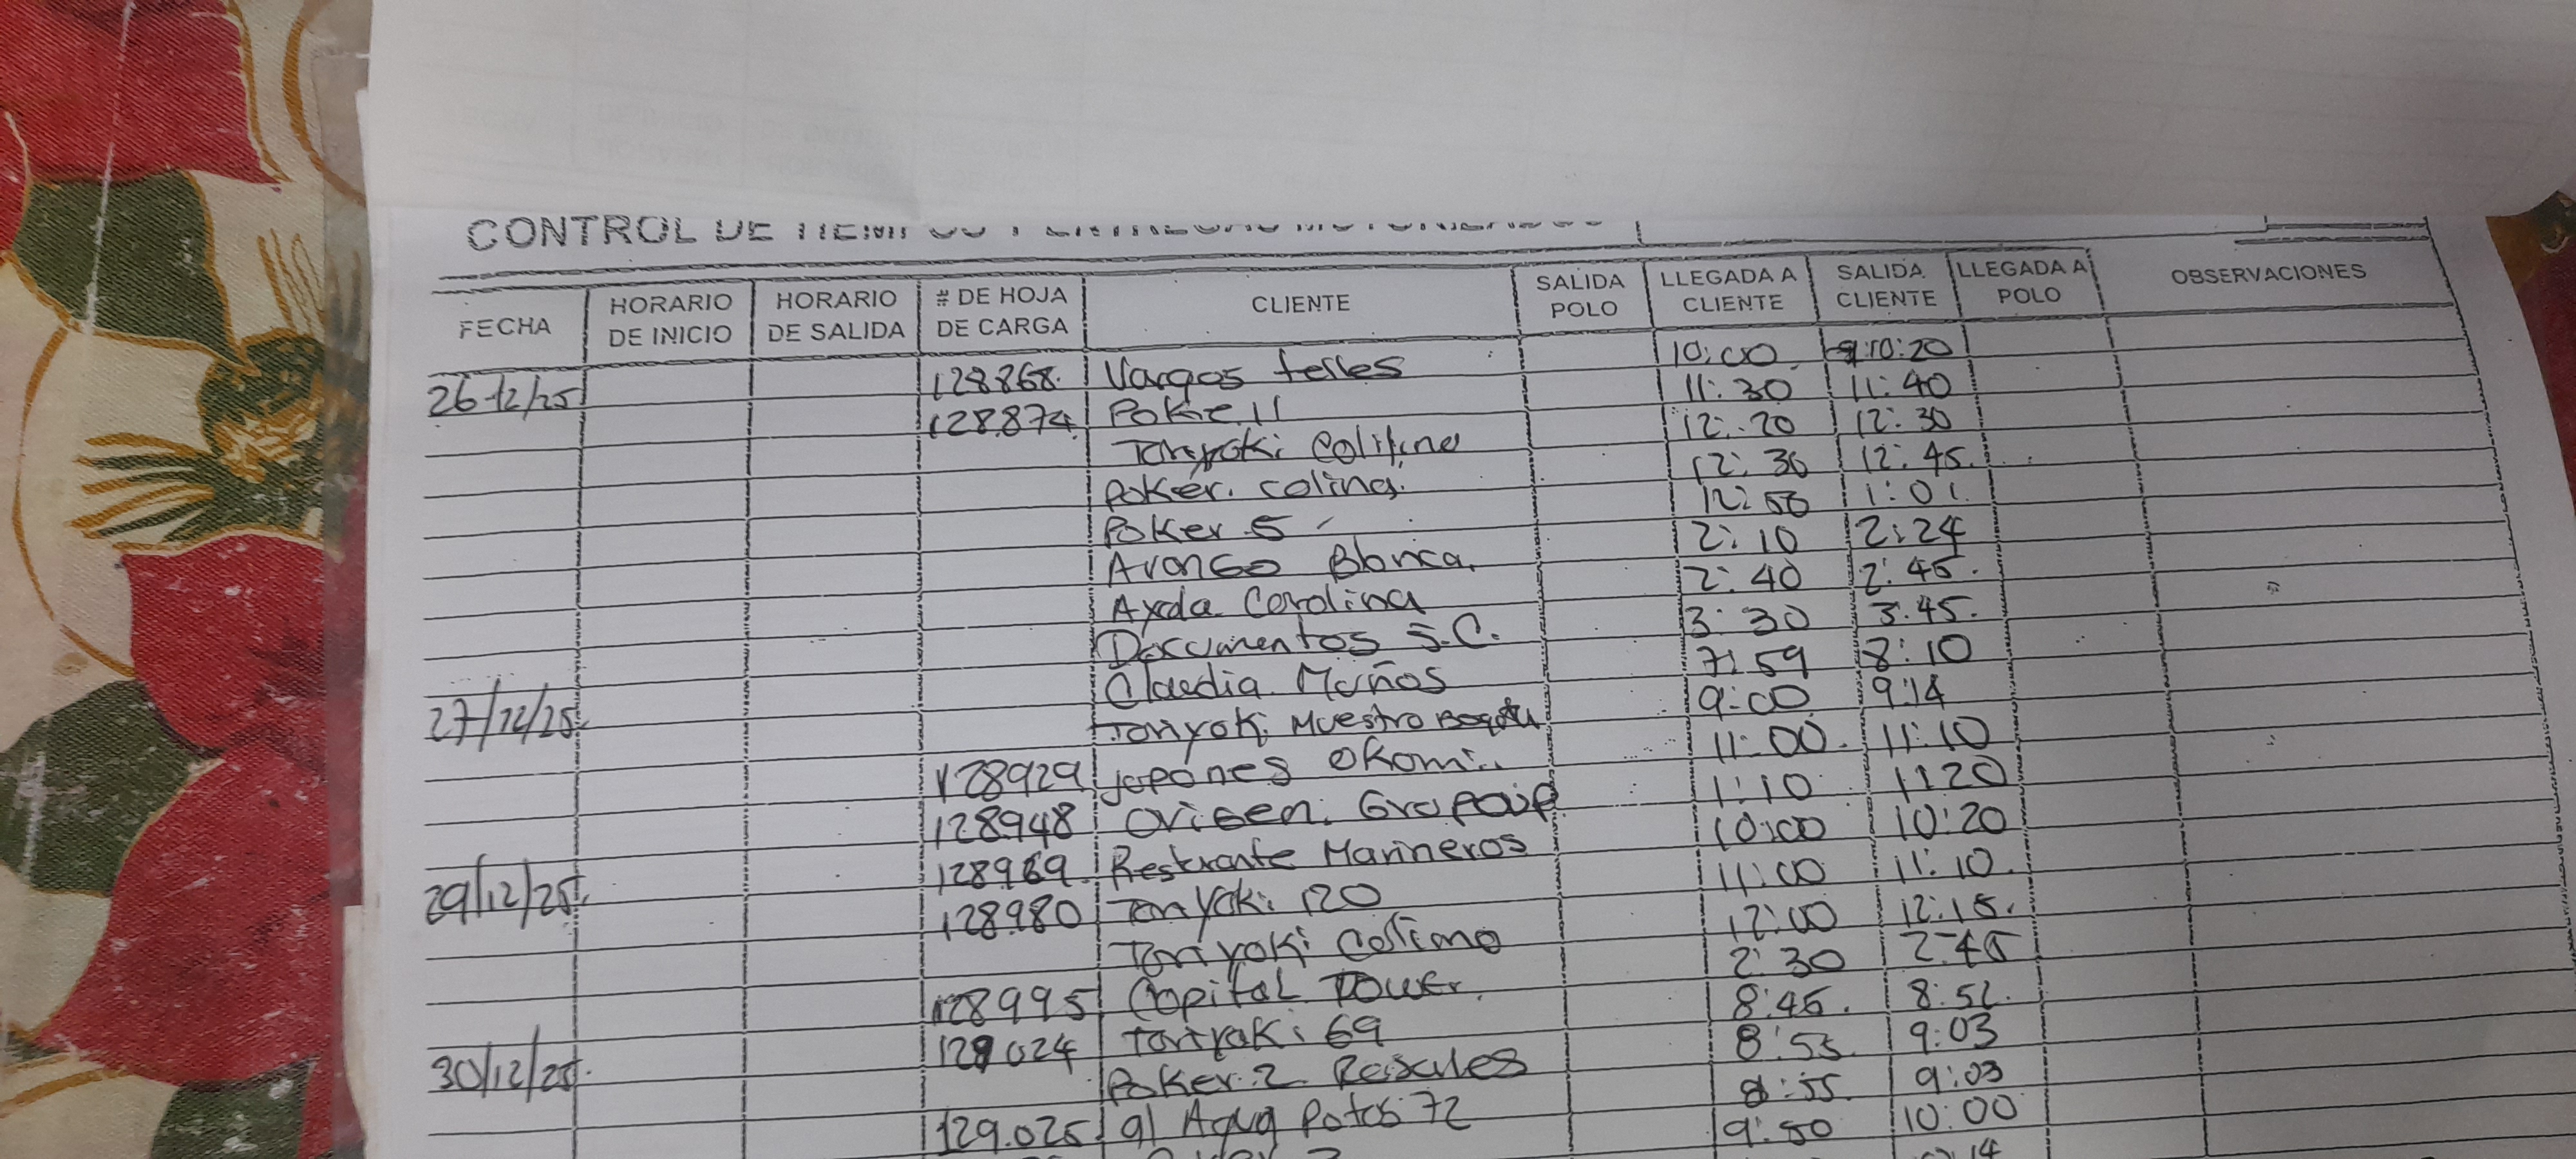 CONTROL DE TIEMPOS Y ENTREGAS MOTORIZADOS
FECHA HORARIO DE INICIO HORARIO DE SALIDA # DE HOJA DE CARGA CLIENTE SALIDA POLO LLEGADA A CLIENTE SALIDA CLIENTE LLEGADA A POLO OBSERVACIONES
26-12/25 128868. Vargas telles 10:00 10:20
128.874 Poke 11 11:30 11:40
12:20 12:30
Poker. colina. 12:30 12:45.
Poker 5 12:50 1:01
Arango Blanca. 2:10 2:24
Ayda Carolina 2:40 2:45.
Documentos S.C. 3:30 3:45.
27/12/25. Claudia Muños 7:59 8:10
Tonyoki Muestro Bogota 9:00 9:14
128929 japones Okomi.. 11:00. 11:10
128948 Origen. 1:10 1:20
29/12/25. 128969. Resturante Marineros 10:00 10:20
128.980 Tonyoki 120 11:00 11:10.
Toriyoki 12:00 12:15.
128995 Capital Tower. 2:30 2:45
30/12/25. 129024 69 8:45. 8:52.
Poker. 2 Rosales 8:53. 9:03
129.025. 91 Agua Potos 72 8:55. 9:03
9:50 10:00